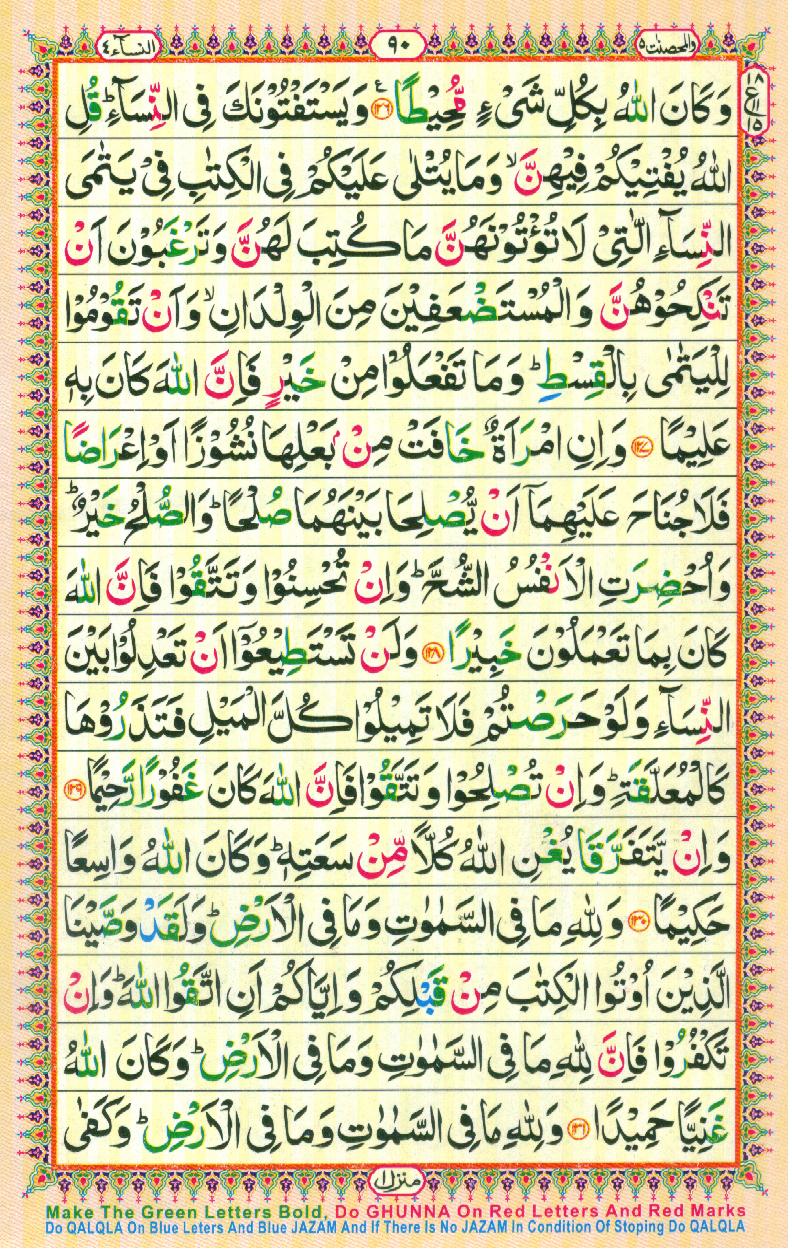 والمحصنت ۵ ۹۰ النسآء ۴
۱۸ ع ۱۱ ۱۵
وَكَانَ اللّٰهُ بِكُلِّ شَیْءٍ مُّحِیْطًا ۝۱۲۶ وَیَسْتَفْتُوْنَكَ فِی النِّسَآءِ ؕ قُلِ
اللّٰهُ یُفْتِیْكُمْ فِیْهِنَّ ۙ وَمَا یُتْلٰی عَلَیْكُمْ فِی الْكِتٰبِ فِیْ یَتٰمَی
النِّسَآءِ الّٰتِیْ لَا تُؤْتُوْنَهُنَّ مَا كُتِبَ لَهُنَّ وَتَرْغَبُوْنَ اَنْ
تَنْكِحُوْهُنَّ وَالْمُسْتَضْعَفِیْنَ مِنَ الْوِلْدَانِ ۙ وَاَنْ تَقُوْمُوْا
لِلْیَتٰمٰی بِالْقِسْطِ ؕ وَمَا تَفْعَلُوْا مِنْ خَیْرٍ فَاِنَّ اللّٰهَ كَانَ بِهٖ
عَلِیْمًا ۝۱۲۷ وَاِنِ امْرَاَةٌ خَافَتْ مِنْۢ بَعْلِهَا نُشُوْزًا اَوْ اِعْرَاضًا
فَلَا جُنَاحَ عَلَیْهِمَاۤ اَنْ یُّصْلِحَا بَیْنَهُمَا صُلْحًا ؕ وَالصُّلْحُ خَیْرٌ ؕ
وَاُحْضِرَتِ الْاَنْفُسُ الشُّحَّ ؕ وَاِنْ تُحْسِنُوْا وَتَتَّقُوْا فَاِنَّ اللّٰهَ
كَانَ بِمَا تَعْمَلُوْنَ خَبِیْرًا ۝۱۲۸ وَلَنْ تَسْتَطِیْعُوْۤا اَنْ تَعْدِلُوْا بَیْنَ
النِّسَآءِ وَلَوْ حَرَصْتُمْ فَلَا تَمِیْلُوْا كُلَّ الْمَیْلِ فَتَذَرُوْهَا
كَالْمُعَلَّقَةِ ؕ وَاِنْ تُصْلِحُوْا وَتَتَّقُوْا فَاِنَّ اللّٰهَ كَانَ غَفُوْرًا رَّحِیْمًا ۝۱۲۹
وَاِنْ یَّتَفَرَّقَا یُغْنِ اللّٰهُ كُلًّا مِّنْ سَعَتِهٖ ؕ وَكَانَ اللّٰهُ وَاسِعًا
حَكِیْمًا ۝۱۳۰ وَلِلّٰهِ مَا فِی السَّمٰوٰتِ وَمَا فِی الْاَرْضِ ؕ وَلَقَدْ وَصَّیْنَا
الَّذِیْنَ اُوْتُوا الْكِتٰبَ مِنْ قَبْلِكُمْ وَاِیَّاكُمْ اَنِ اتَّقُوا اللّٰهَ ؕ وَاِنْ
تَكْفُرُوْا فَاِنَّ لِلّٰهِ مَا فِی السَّمٰوٰتِ وَمَا فِی الْاَرْضِ ؕ وَكَانَ اللّٰهُ
غَنِیًّا حَمِیْدًا ۝۱۳۱ وَلِلّٰهِ مَا فِی السَّمٰوٰتِ وَمَا فِی الْاَرْضِ ؕ وَكَفٰی
منزل ۱
Make The Green Letters Bold, Do GHUNNA On Red Letters And Red Marks
Do QALQLA On Blue Leters And Blue JAZAM And If There Is No JAZAM In Condition Of Stoping Do QALQLA